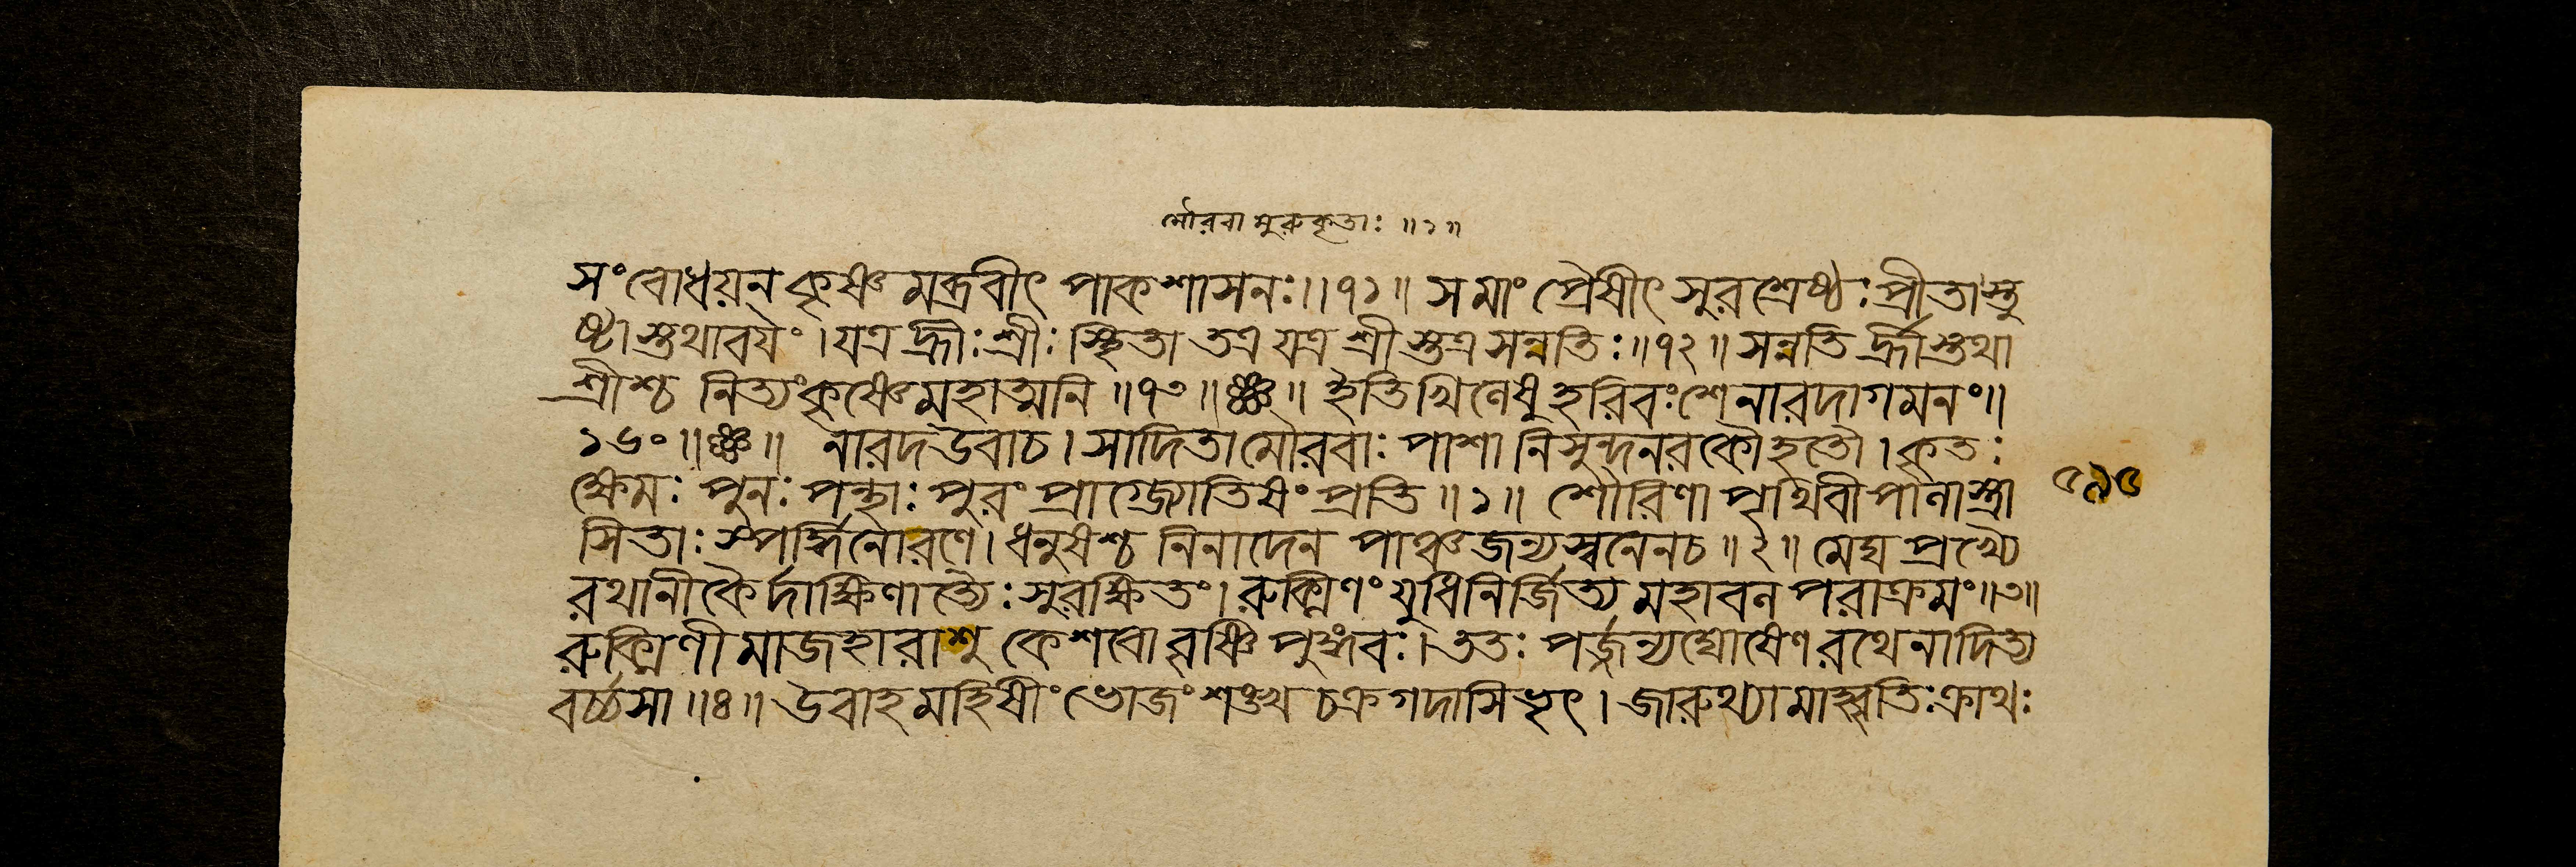 র্মোরবা মুরুকৃতাঃ ॥১॥
সংবোধয়ন্ কৃষ্ণমব্রবীৎ পাকশাসনঃ॥৭১॥ সমাং প্রৈষীৎ সুরশ্রেষ্ঠঃ প্রীতাস্তু
ষ্টাস্তথাবয়ং। যত্র হ্রীঃ শ্রীঃ স্থিতা তত্র যত্র শ্রীস্তত্র সন্নতিঃ॥৭২॥ সন্নতি র্হ্রীস্তথা
শ্রীশ্চ নিত্যং কৃষ্ণে মহাত্মনি॥৭৩॥ঞ্চ॥ ইতি খিলেষু হরিবংশে নারদাগমনং॥
১৬০॥ঞ্চ॥ নারদ উবাচ। সাদিতা মৌরবাঃ পাশা নিসুন্দনরকৌ হতৌ। কৃতঃ
ক্ষেমঃ পুনঃ পন্থাঃ পুরং প্রাগ্জ্যোতিষং প্রতি॥১॥ শৌরিণা পৃথিবীপালাস্ত্রা
৫৯৫
সিতাঃ স্পর্দ্ধিনো রণে। ধনুষশ্চ নিনাদেন পাঞ্চজন্যস্বনেনচ॥২॥ মেঘ প্রখ্যৈ
রথানীকৈ র্দাক্ষিণাত্যৈঃ সুরক্ষিতং। রুক্মিণং যুধি নির্জিত্য মহাবল পরাক্রমং॥৩॥
রুক্মিণী মাজহারাশু কেশবো বৃষ্ণি পুঙ্গবঃ। ততঃ পর্জ্জন্যঘোষেণ রথেনাদিত্য
বর্চ্চসা॥৪॥ উবাহ মহিষীং ভোজং শঙ্খ চক্র গদাসিভৃৎ। জারুথ্যামাহ্বৃতিঃ ক্রাথঃ